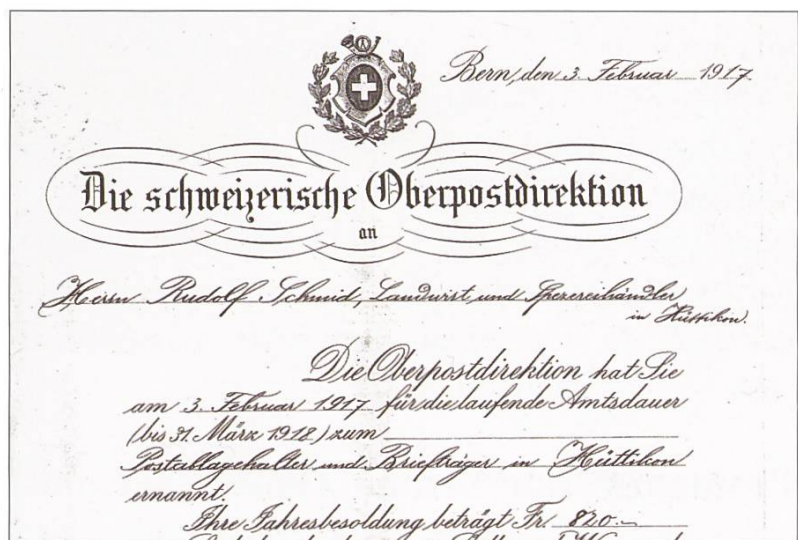 Bern, den 3. Februar 1917
Die schweizerische Oberpostdirektion
an
Herrn Rudolf Schmid, Landwirt und Spezereihändler
in Hüttikon.
Die Oberpostdirektion hat Sie
am 3. Februar 1917 für die laufende Amtsdauer
(bis 31. März 1918) zum
Postablagehalter und Briefträger in Hüttikon
ernannt.
Ihre Jahresbesoldung beträgt Fr. 820.-